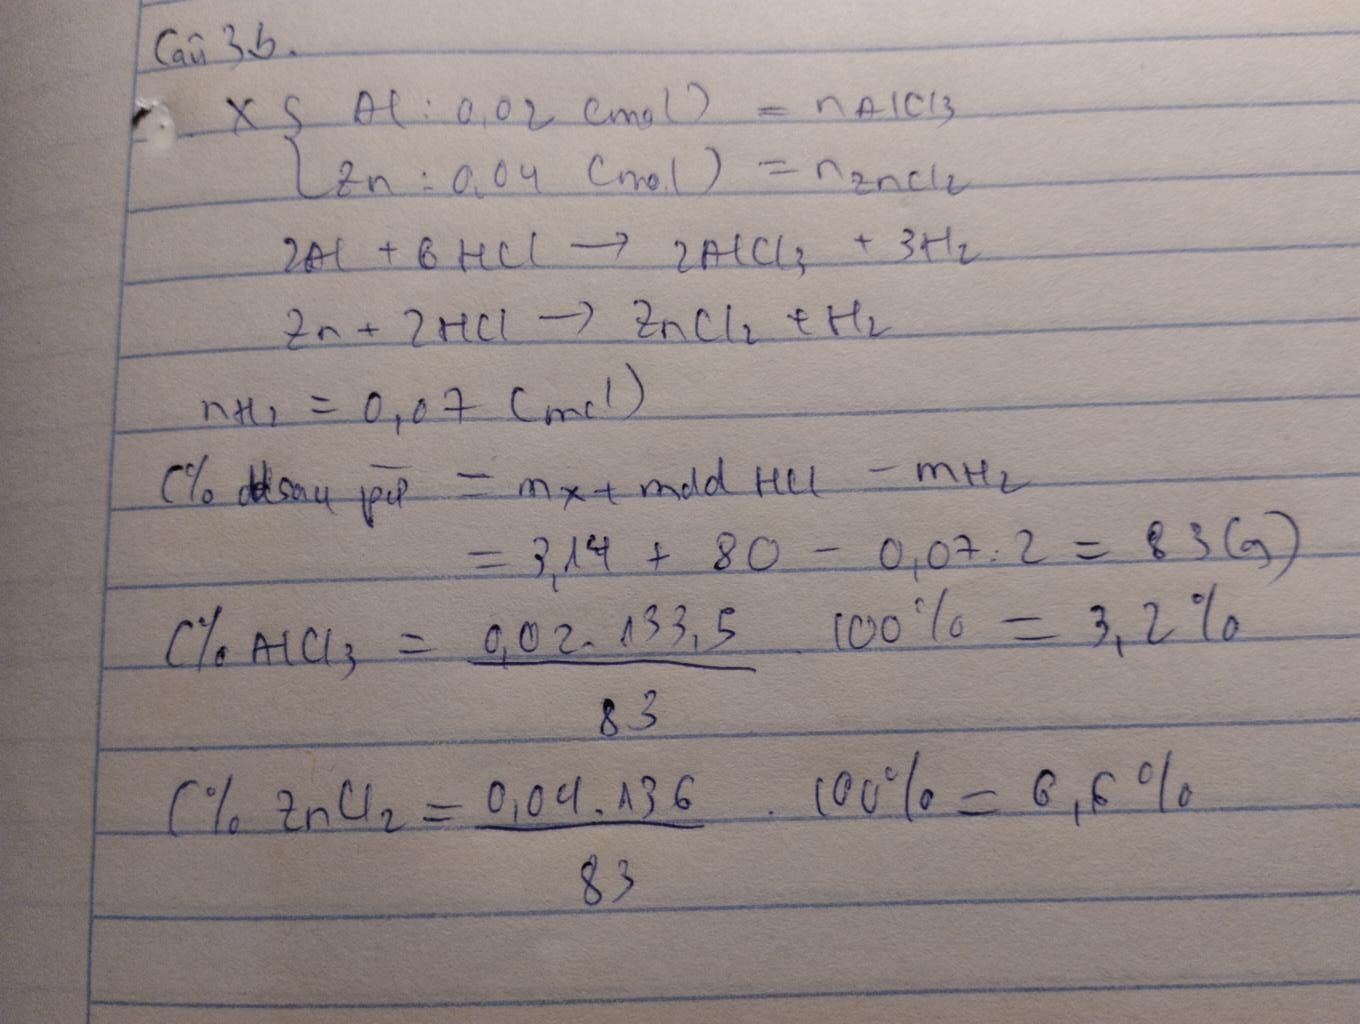 Câu 3.b.
X { Al : 0,02 (mol) = nAlCl3
Zn : 0,04 (mol) = nZnCl2
2Al + 6HCl → 2AlCl3 + 3H2
Zn + 2HCl → ZnCl2 + H2
nH2 = 0,07 (mol)
C% sau pứ = mx + mdd HCl - mH2
= 3,14 + 80 - 0,07.2 = 83 (g)
C% AlCl3 = 0,02.133,5 / 83 . 100% = 3,2%
C% ZnCl2 = 0,04.136 / 83 . 100% = 6,6%